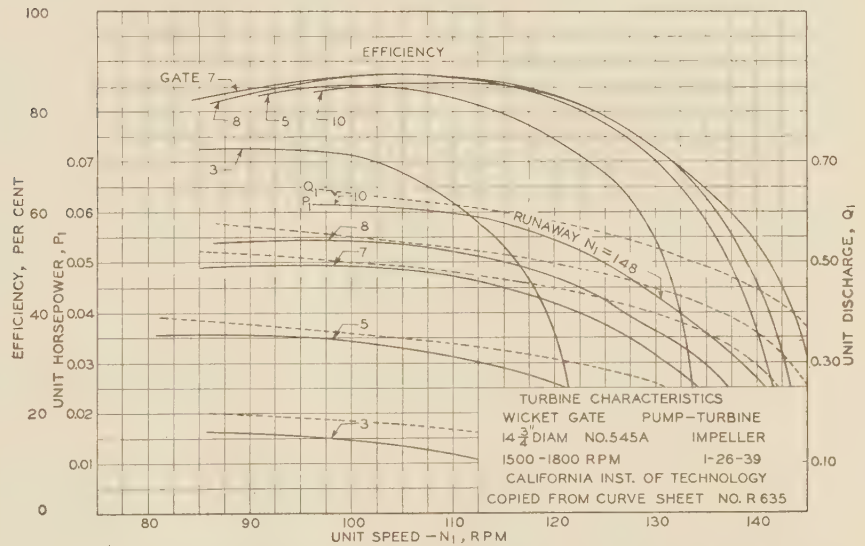 100
80
60
40
20
0
EFFICIENCY, PER CENT
0.07
0.06
0.05
0.04
0.03
0.02
0.01
UNIT HORSEPOWER, P1
EFFICIENCY
GATE 7
8
5
10
3
Q1
10
P1
8
7
5
3
RUNAWAY N1=148
0.70
0.50
0.30
0.10
UNIT DISCHARGE, Q1
TURBINE CHARACTERISTICS
WICKET GATE PUMP-TURBINE
14 3/4" DIAM NO.545A IMPELLER
1500-1800 RPM 1-26-39
CALIFORNIA INST. OF TECHNOLOGY
COPIED FROM CURVE SHEET NO. R 635
80 90 100 110 120 130 140
UNIT SPEED-N1, RPM